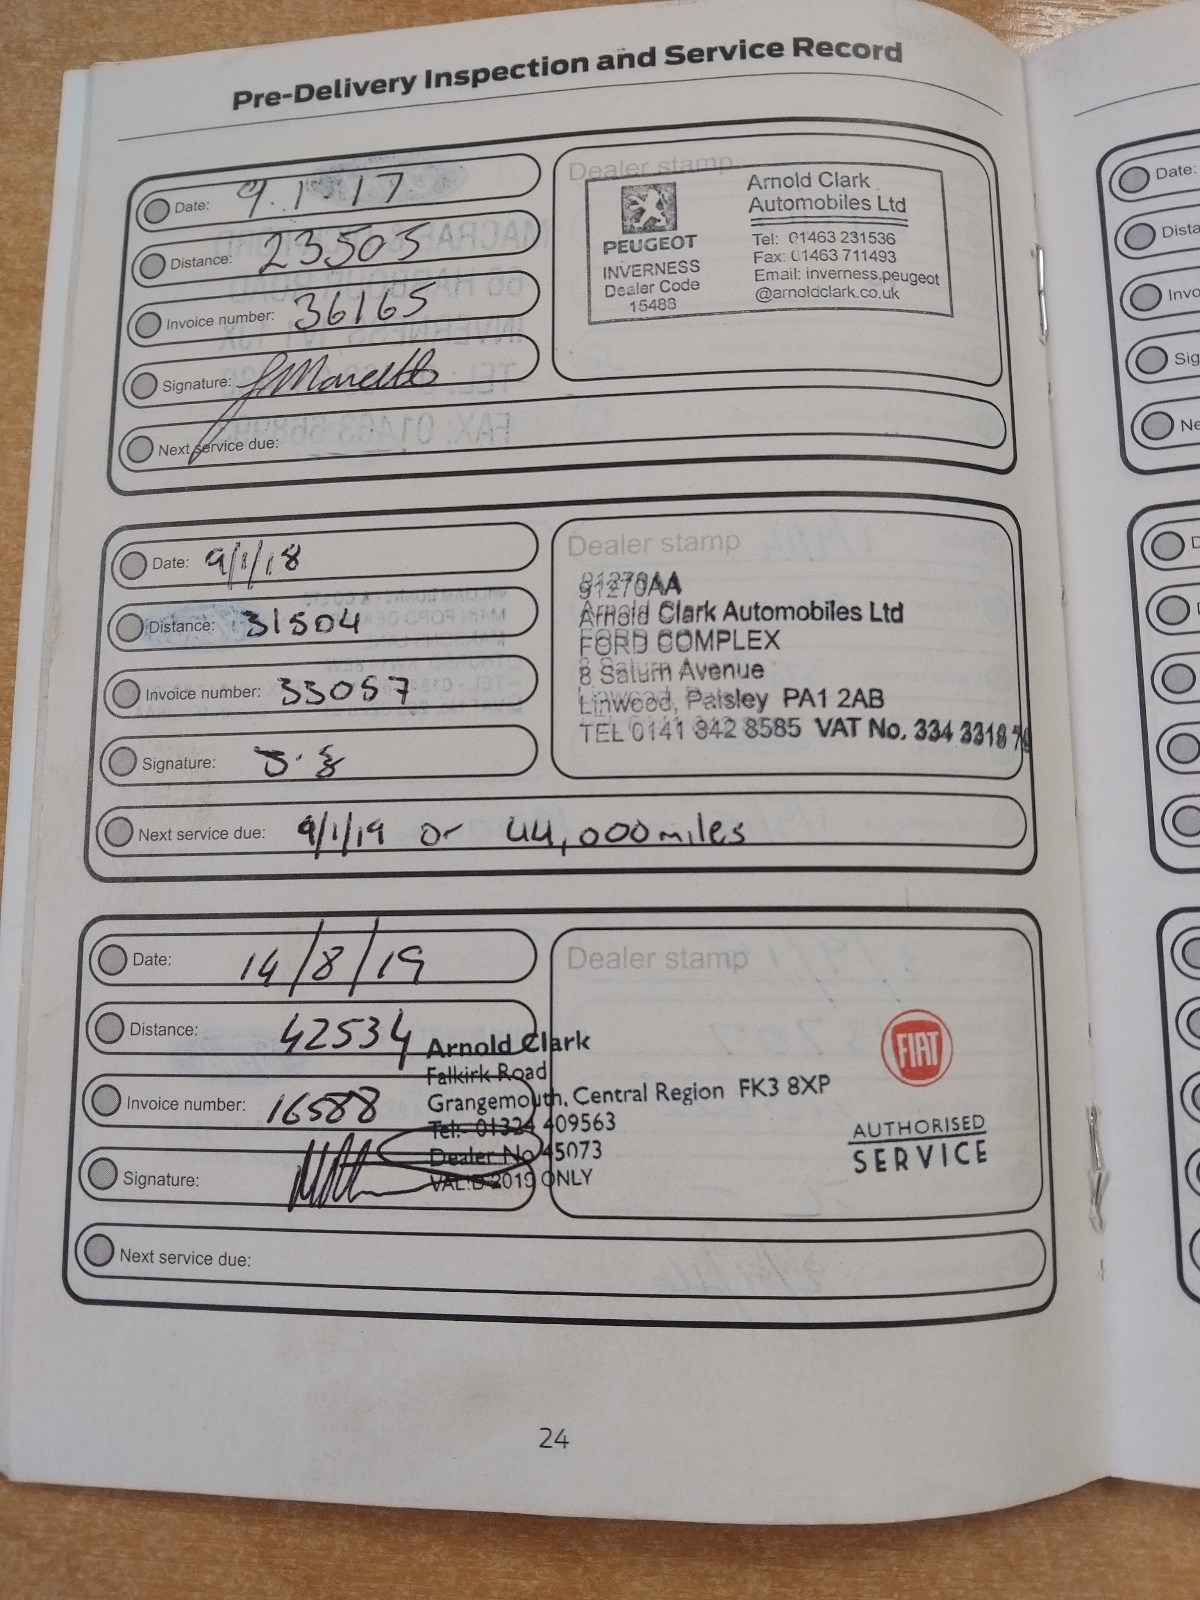 Pre-Delivery Inspection and Service Record
Date: 9.1.17
Distance: 23505
Invoice number: 36165
Signature:
Next service due:
Dealer stamp
PEUGEOT
INVERNESS
Dealer Code
15488
Arnold Clark
Automobiles Ltd
Tel: 01463 231536
Fax: 01463 711493
Email: inverness.peugeot
@arnoldclark.co.uk
Date: 9/1/18
Distance: 31504
Invoice number: 33057
Signature:
Next service due: 9/1/19 or 44,000miles
Dealer stamp
91270AA
Arnold Clark Automobiles Ltd
FORD COMPLEX
8 Saturn Avenue
Linwood, Paisley PA1 2AB
TEL 0141 842 8585 VAT No. 334 3318
Date: 14/8/19
Distance: 42534
Invoice number: 16588
Signature:
Next service due:
Dealer stamp
Arnold Clark
Falkirk Road
Grangemouth, Central Region FK3 8XP
Tel:- 01324 409563
Dealer No 45073
VALID 2019 ONLY
FIAT
AUTHORISED
SERVICE
24
Date: